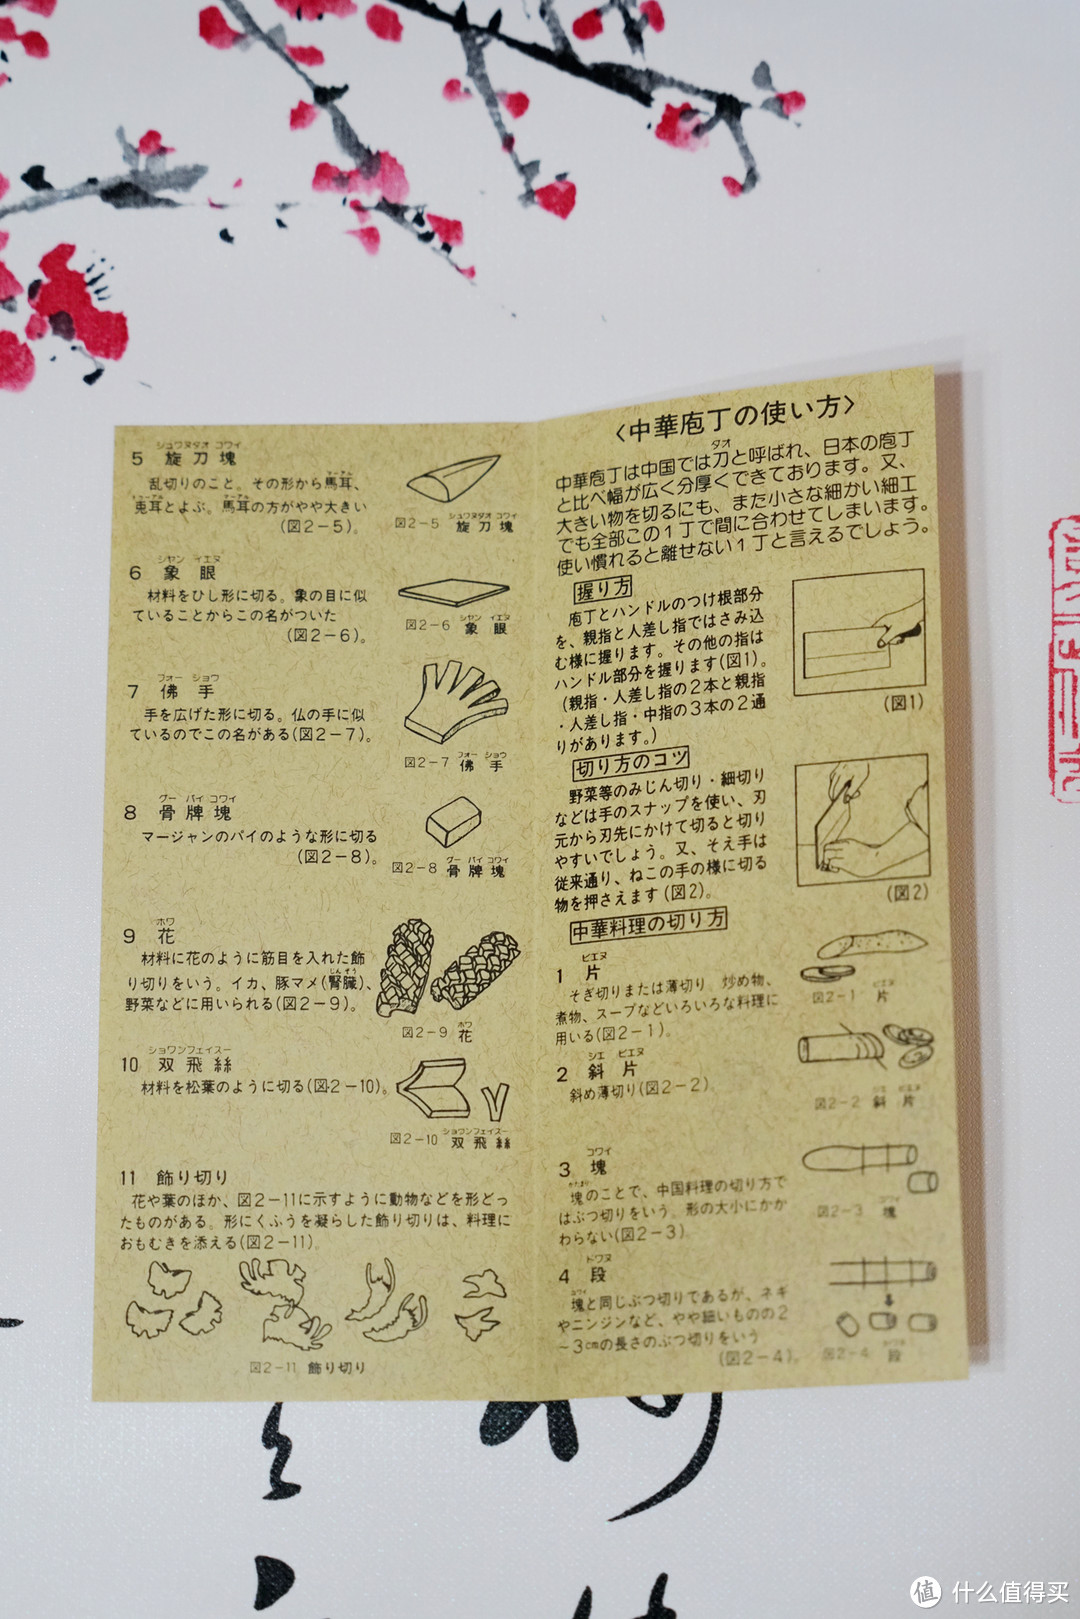 〈中華庖丁の使い方〉
タオ
中華庖丁は中国では刀と呼ばれ、日本の庖丁
と比べ幅が広く分厚くできております。又、
大きい物を切るにも、また小さな細かい細工
でも全部この1丁で間に合わせてしまいます。
使い慣れると離せない1丁と言えるでしょう。
握り方
庖丁とハンドルのつけ根部分
を、親指と人差し指ではさみ込
む様に握ります。その他の指は
ハンドル部分を握ります(図1)。
(親指・人差し指の2本と親指
・人差し指・中指の3本の2通
りがあります。)
(図1)
切り方のコツ
野菜等のみじん切り・細切り
などは手のスナップを使い、刃
元から刃先にかけて切ると切り
やすいでしょう。又、そえ手は
従来通り、ねこの手の様に切る
物を押さえます(図2)。
(図2)
中華料理の切り方
ピエヌ
1 片
そぎ切りまたは薄切り 炒め物、
煮物、スープなどいろいろな料理に
用いる(図2-1)。
ピエヌ
図2-1 片
シエ ピエヌ
2 斜 片
斜め薄切り(図2-2)
シエ ピエヌ
図2-2 斜 片
コワイ
3 塊
かたまり
塊のことで、中国料理の切り方で
はぶつ切りをいう。形の大小にかか
わらない(図2-3)
コワイ
図2-3 塊
ドワヌ
4 段
コワイ
塊と同じぶつ切りであるが、ネギ
やニンジンなど、やや細いものの2
~3cmの長さのぶつ切りをいう
(図2-4)。
図2-4 段
シュワヌタオ コワイ
5 旋 刀 塊
マーアル
乱切りのこと。その形から馬耳、
トゥーアル マーアル
兎耳とよぶ。馬耳の方がやや大きい
(図2-5)。
シュワヌタオ コワイ
図2-5 旋 刀 塊
シヤン イエヌ
6 象 眼
材料をひし形に切る。象の目に似
ていることからこの名がついた
(図2-6)。
シヤン イエヌ
図2-6 象 眼
フォー ショウ
7 佛 手
手を広げた形に切る。仏の手に似
ているのでこの名がある(図2-7)。
フォー ショウ
図2-7 佛 手
グー パイ コワイ
8 骨 牌 塊
マージャンのパイのような形に切る
(図2-8)。
グー パイ コワイ
図2-8 骨 牌 塊
ホワ
9 花
材料に花のように筋目を入れた飾
じんぞう
り切りをいう。イカ、豚マメ(腎臓)、
野菜などに用いられる(図2-9)。
ホワ
図2-9 花
ショワンフェイスー
10 双 飛 絲
材料を松葉のように切る(図2-10)。
ショワンフェイスー
図2-10 双 飛 絲
11 飾り切り
花や葉のほか、図2-11に示すように動物などを形どっ
たものがある。形にくふうを凝らした飾り切りは、料理に
おもむきを添える(図2-11)。
図2-11 飾り切り
值 什么值得买